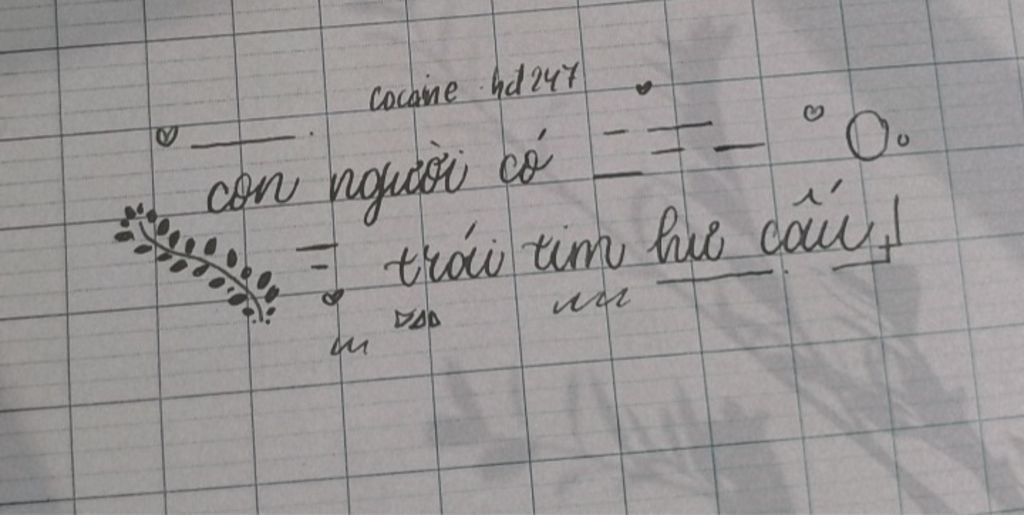 cocaine hd247
con người có
trái tim hue cấu